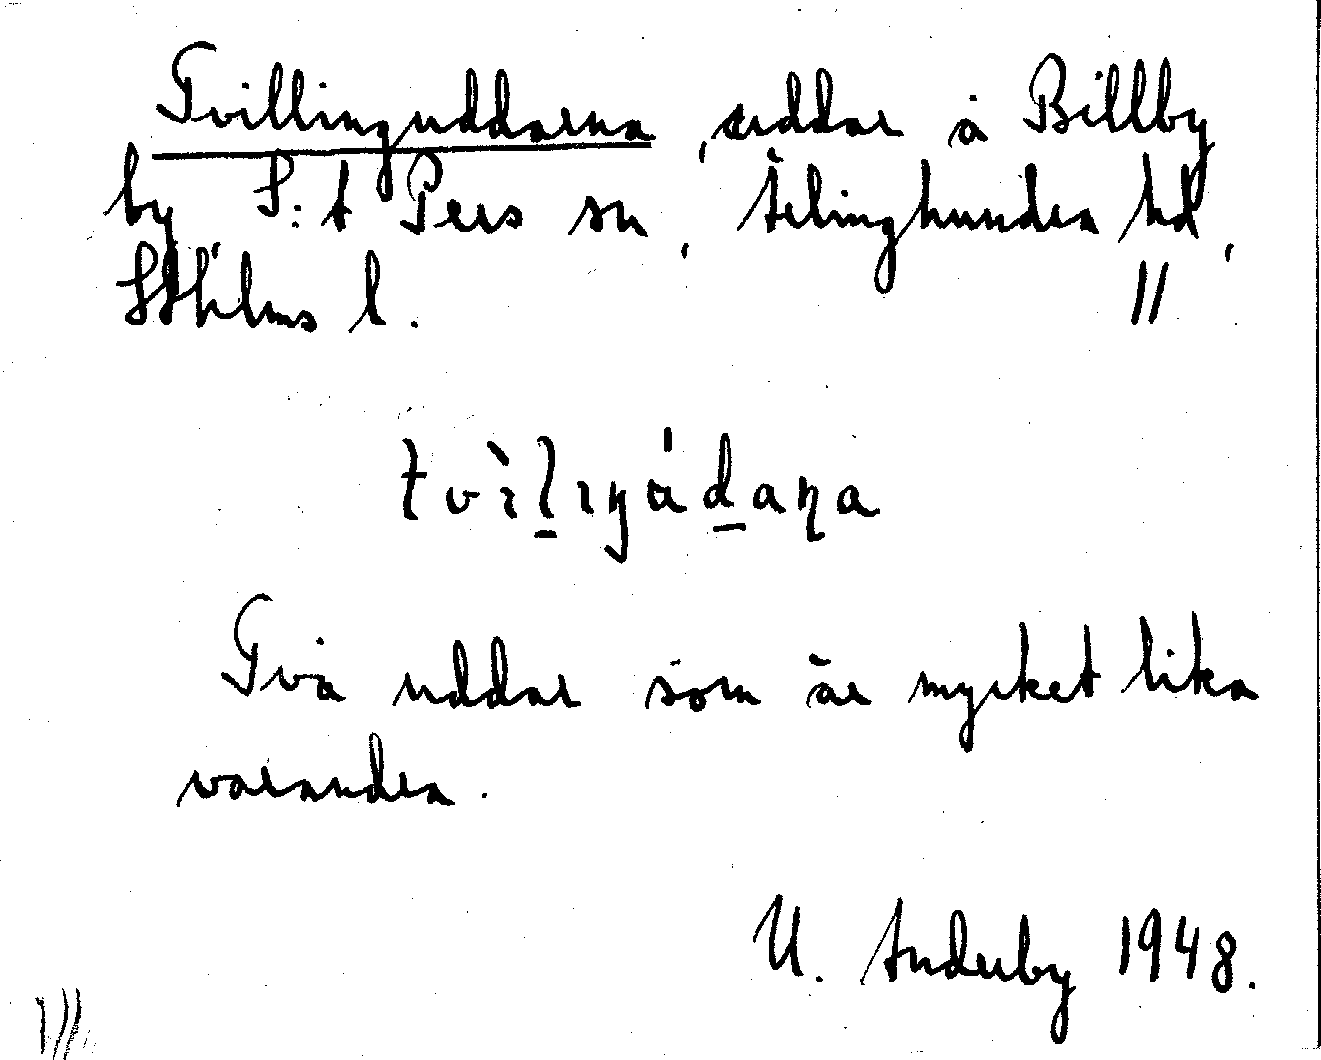 Tvillinguddarna, uddar å Billby
by, S:t Pers sn, Ärlinghundra hd,
Sthlms l.
tvìlıŋádaṇa
Två uddar som är mycket lika
varandra.
U. Anderby 1948.